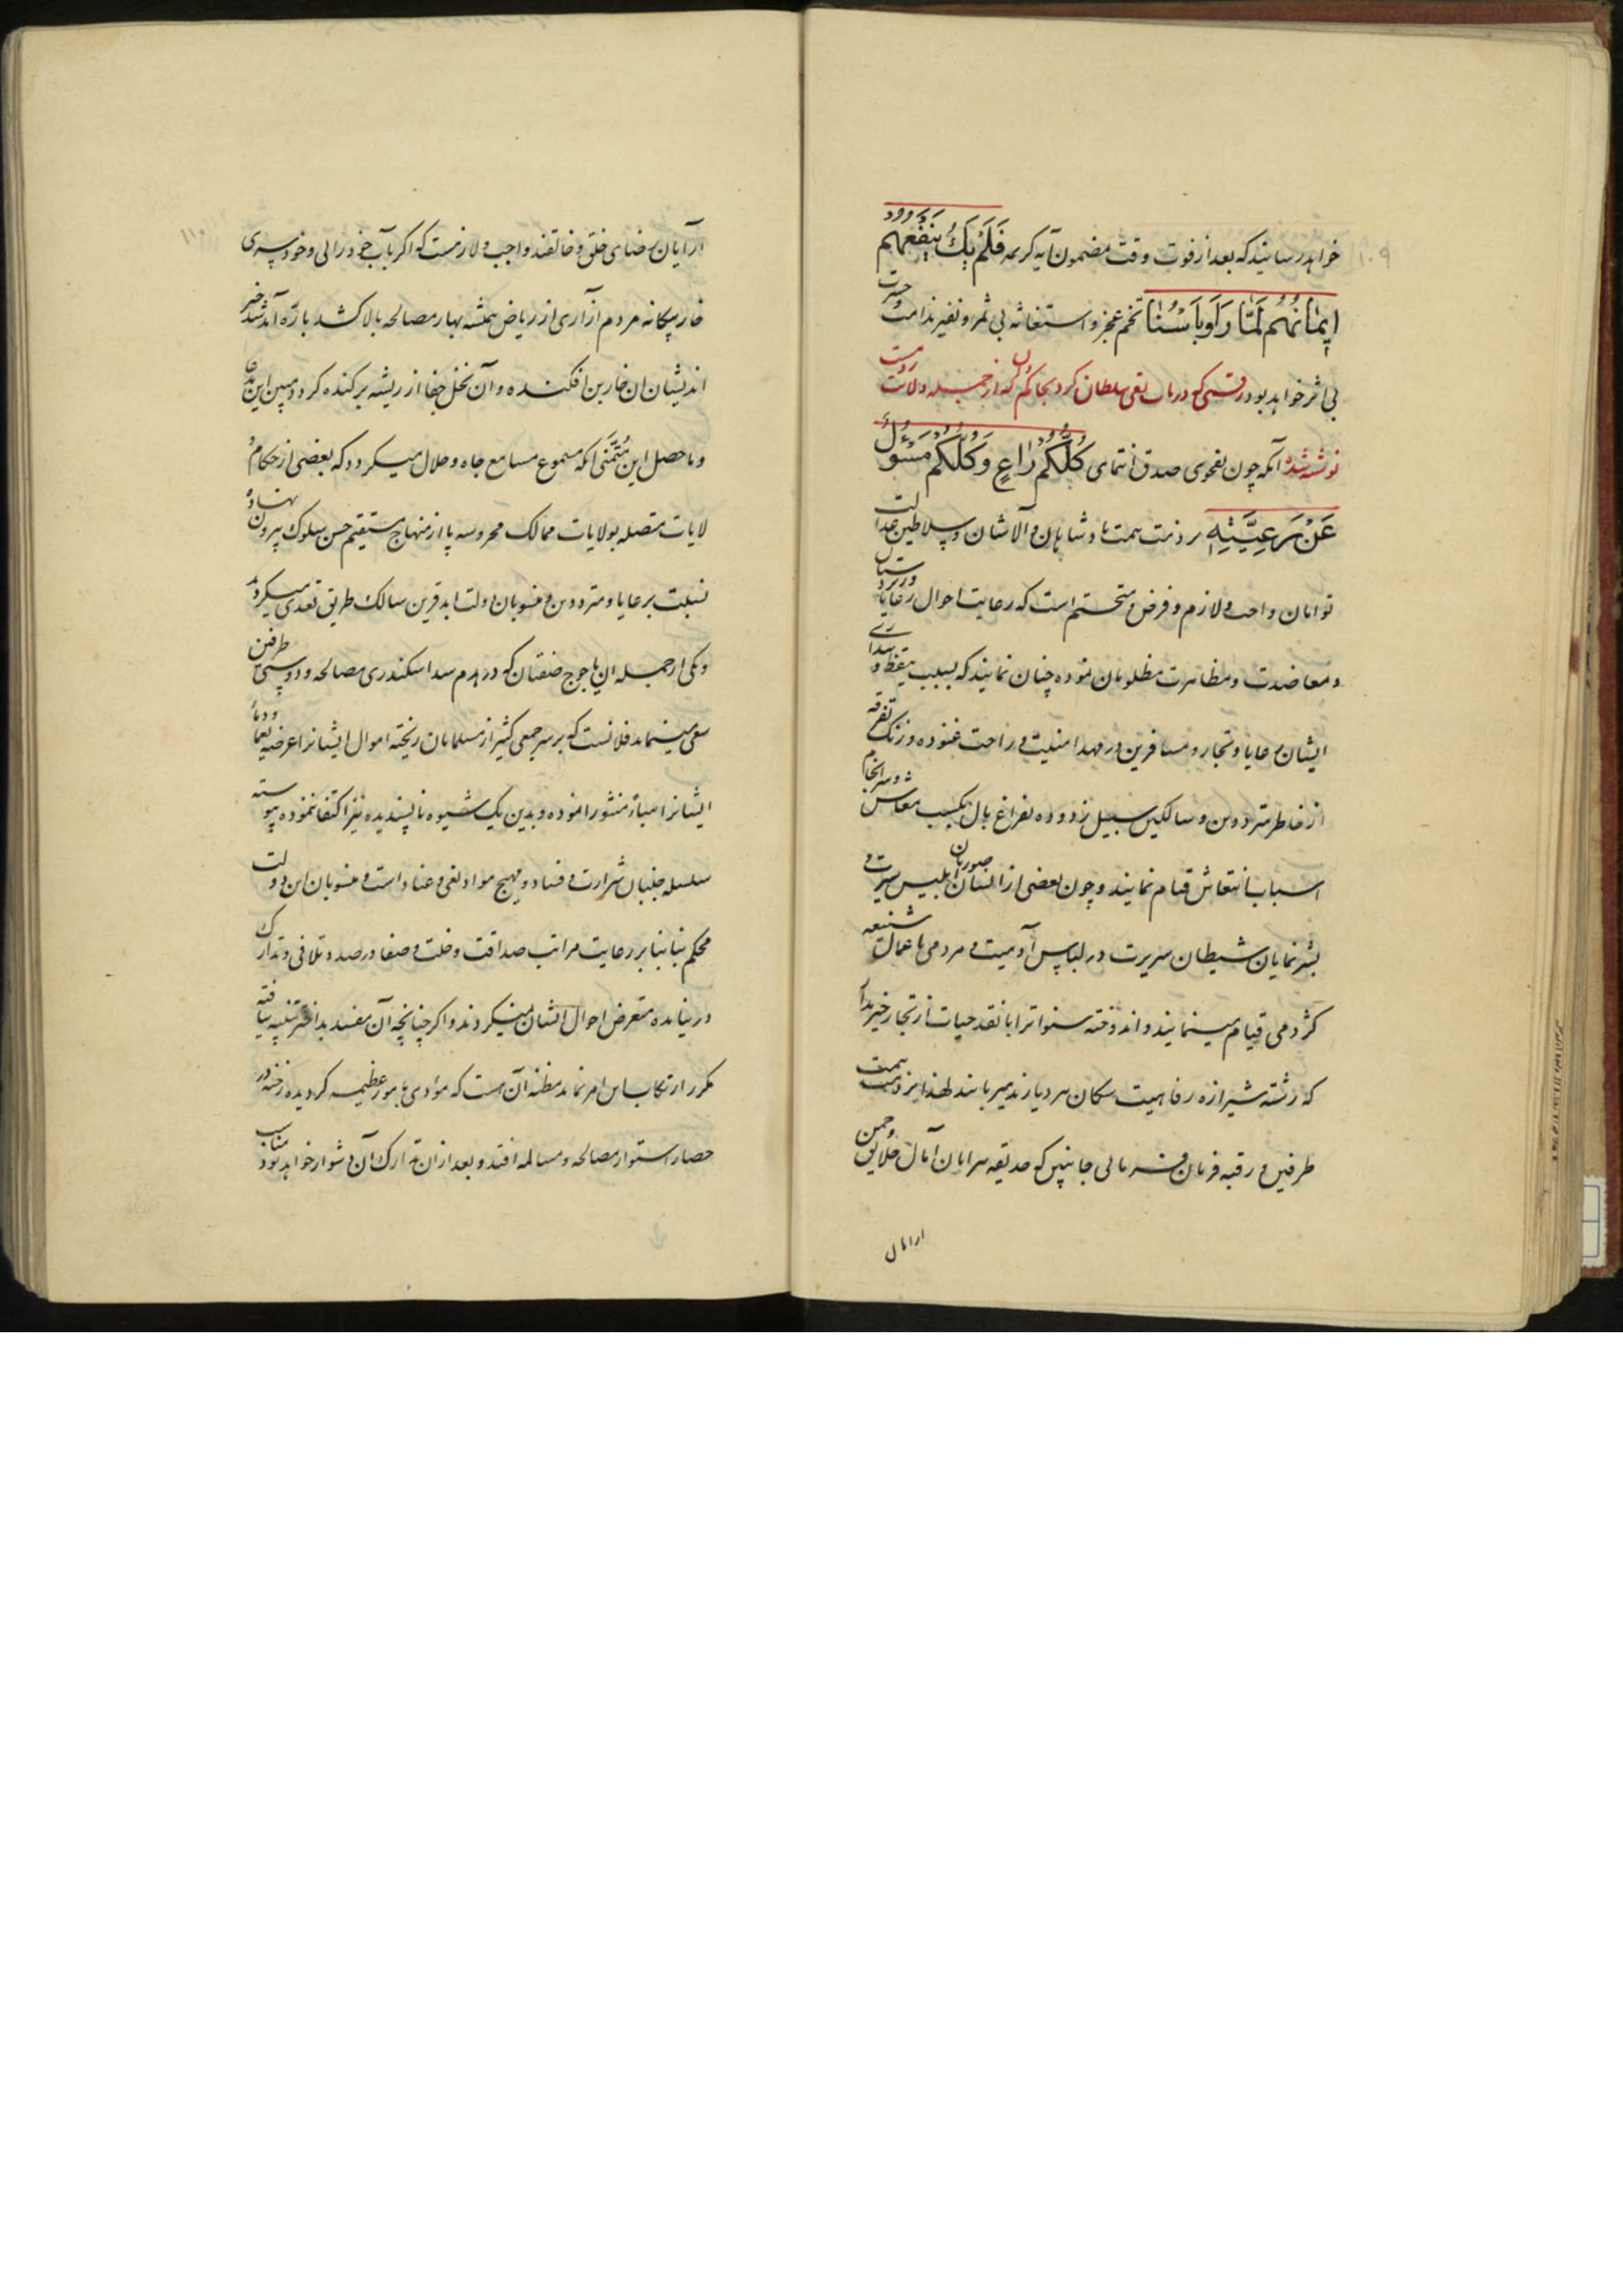 خواهد رسانید که بعد از فوت وقت مضمون آیه کریمه فَلَمْ یَكُ یَنْفَعُهُم
اِیمٰانُهُم لَمّٰا رَاَوْ بَاْسَنٰا تخم عجز و استغاثه بی ثمر و نفیر ندامت و حسرت
بی اثر خواهد بود رقمی که در باب تقی سلطان کرد بحاکم که از جمله ولایت
نوشته شد آنکه چون بفحوی صدق انتمای کُلُّکُم رٰاعٍ وَ کُلُّکُم مَسْئُولٌ
عَنْ رَعِیَّتِهِ بر ذمت همت پادشاهان والاشان و سلاطین عدالت
توامان واجب و لازم و فرض و متحتم است که رعایت احوال رعایا و زیردستان
و معاضدت و مظاهرت مظلومان نموده چنان نمایند که بسبب تیقظ و بیداری
ایشان رعایا و تجار و مسافرین در مهد امنیت و راحت غنوده و زنگ تفرقه
از خاطر مترددین و سالکین سبیل زدوده بفراغ بال بکسب معاش و سرانجام
اسباب انتعاش قیام نمایند و چون بعضی از انسان صورتان ابلیس سیرت و
بشر نمایان شیطان سریرت در لباس آدمیت و مردمی باعمال شنیعه
کژدمی قیام مینمایند و اندوخته سنواترا با نقد حیات از تجار خیر مدار
که رشته شیرازه رفاهیت سکان هر دیارند میربایند لهذا بر ذمت همت
طرفین و رقبه فرمان فرمائی جانبین که حدیقه پیرایان آمال خلایق و چمن
ارایان
ارایان رضای خلق و خالقند واجب و لازمست که اگر بآب خودرائی و خودسری
خار بیگانه مردم آزاری از ریاض همیشه بهار مصالحه بالا کشد باره آمد شد خیر
اندیشان ان خاربن افکنده و آن نخل جفا از ریشه برکنده گردد مبین این مدعا
و ماحصل این مُتَمَنّٰی آنکه مسموع مسامع جاه و جلال میگردد که بعضی از حکام
لایات متصله بولایات ممالک محروسه پا از منهاج مستقیم حسن سلوک بیرون نهاده
نسبت برعایا و مترددین و منسوبان دولت ابد قرین سالک طریق تعدی میگردند
و یکی از جمله ان یاجوج صفتان که در هدم سد اسکندری مصالحه و دوستی طرفین
سعی مینماید فلانست که بر سر جمعی کثیر از مسلمانان ریخته اموال ایشانرا عرضه یغما و دماء
ایشانرا هباءً منثورا نموده و بدین یک شیوه ناپسندیده نیز اکتفا ننموده پیوسته
سلسله جنبان شرارت و فساد و مهیج مواد بغی و عناد است و منسوبان این دولت
محکم بنا بنا بر رعایت مراتب صداقت و خلت و صفا در صدد تلافی و تدارک
در نیامده متعرض احوال ایشان نمیگردند و اگر چنانچه آن مفسد بداختر تنبیه نیافته
مکرر ارتکاب این امر نماید مظنه آن هست که مؤدی بامور عظیمه گردیده رخنه در
حصار استوار مصالحه و مسالمه افتد و بعد ازان تدارک آن دشوار خواهد بود مناسب